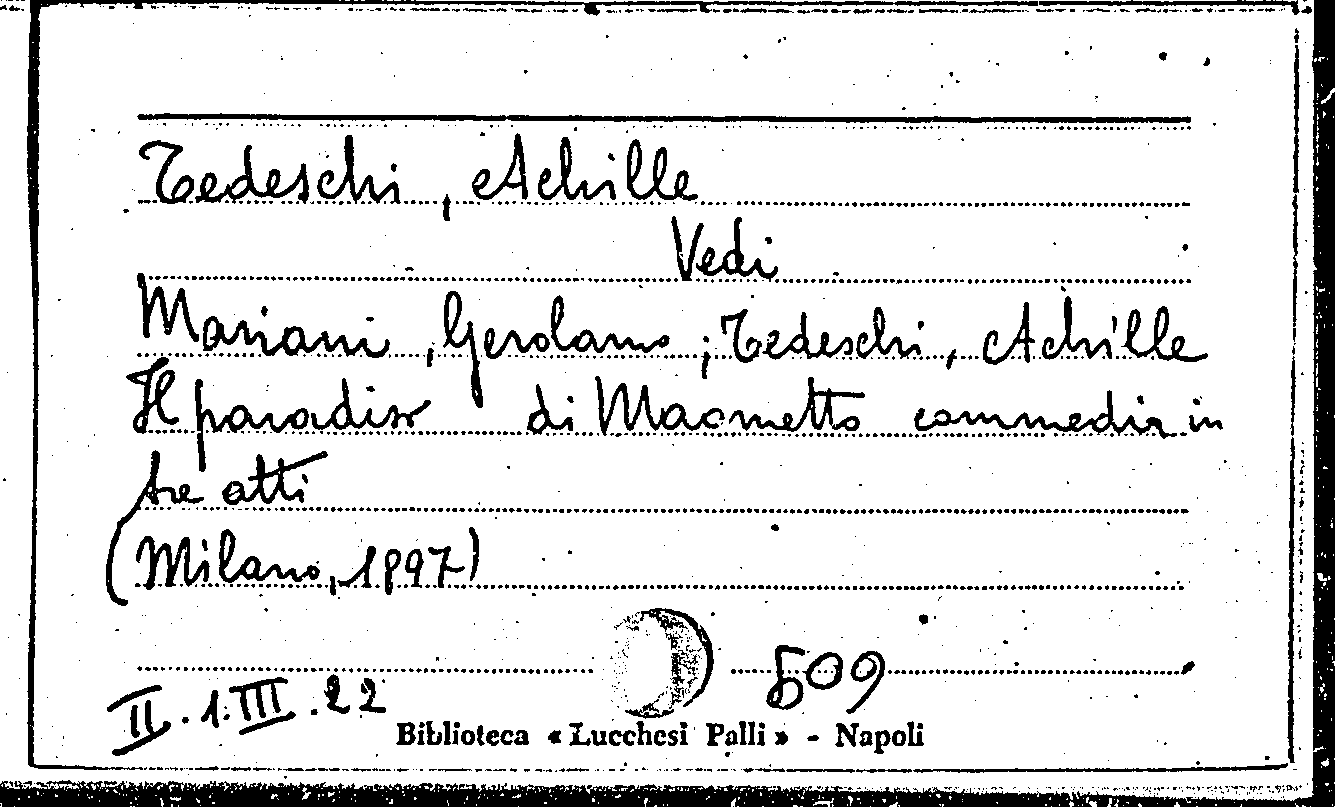 Tedeschi, Achille
Vedi
Mariani, Gerolamo; Tedeschi, Achille
Il paradiso di Maometto commedia in
tre atti
(Milano, 1897)
509
II.1.III.22
Biblioteca « Lucchesi Palli » - Napoli